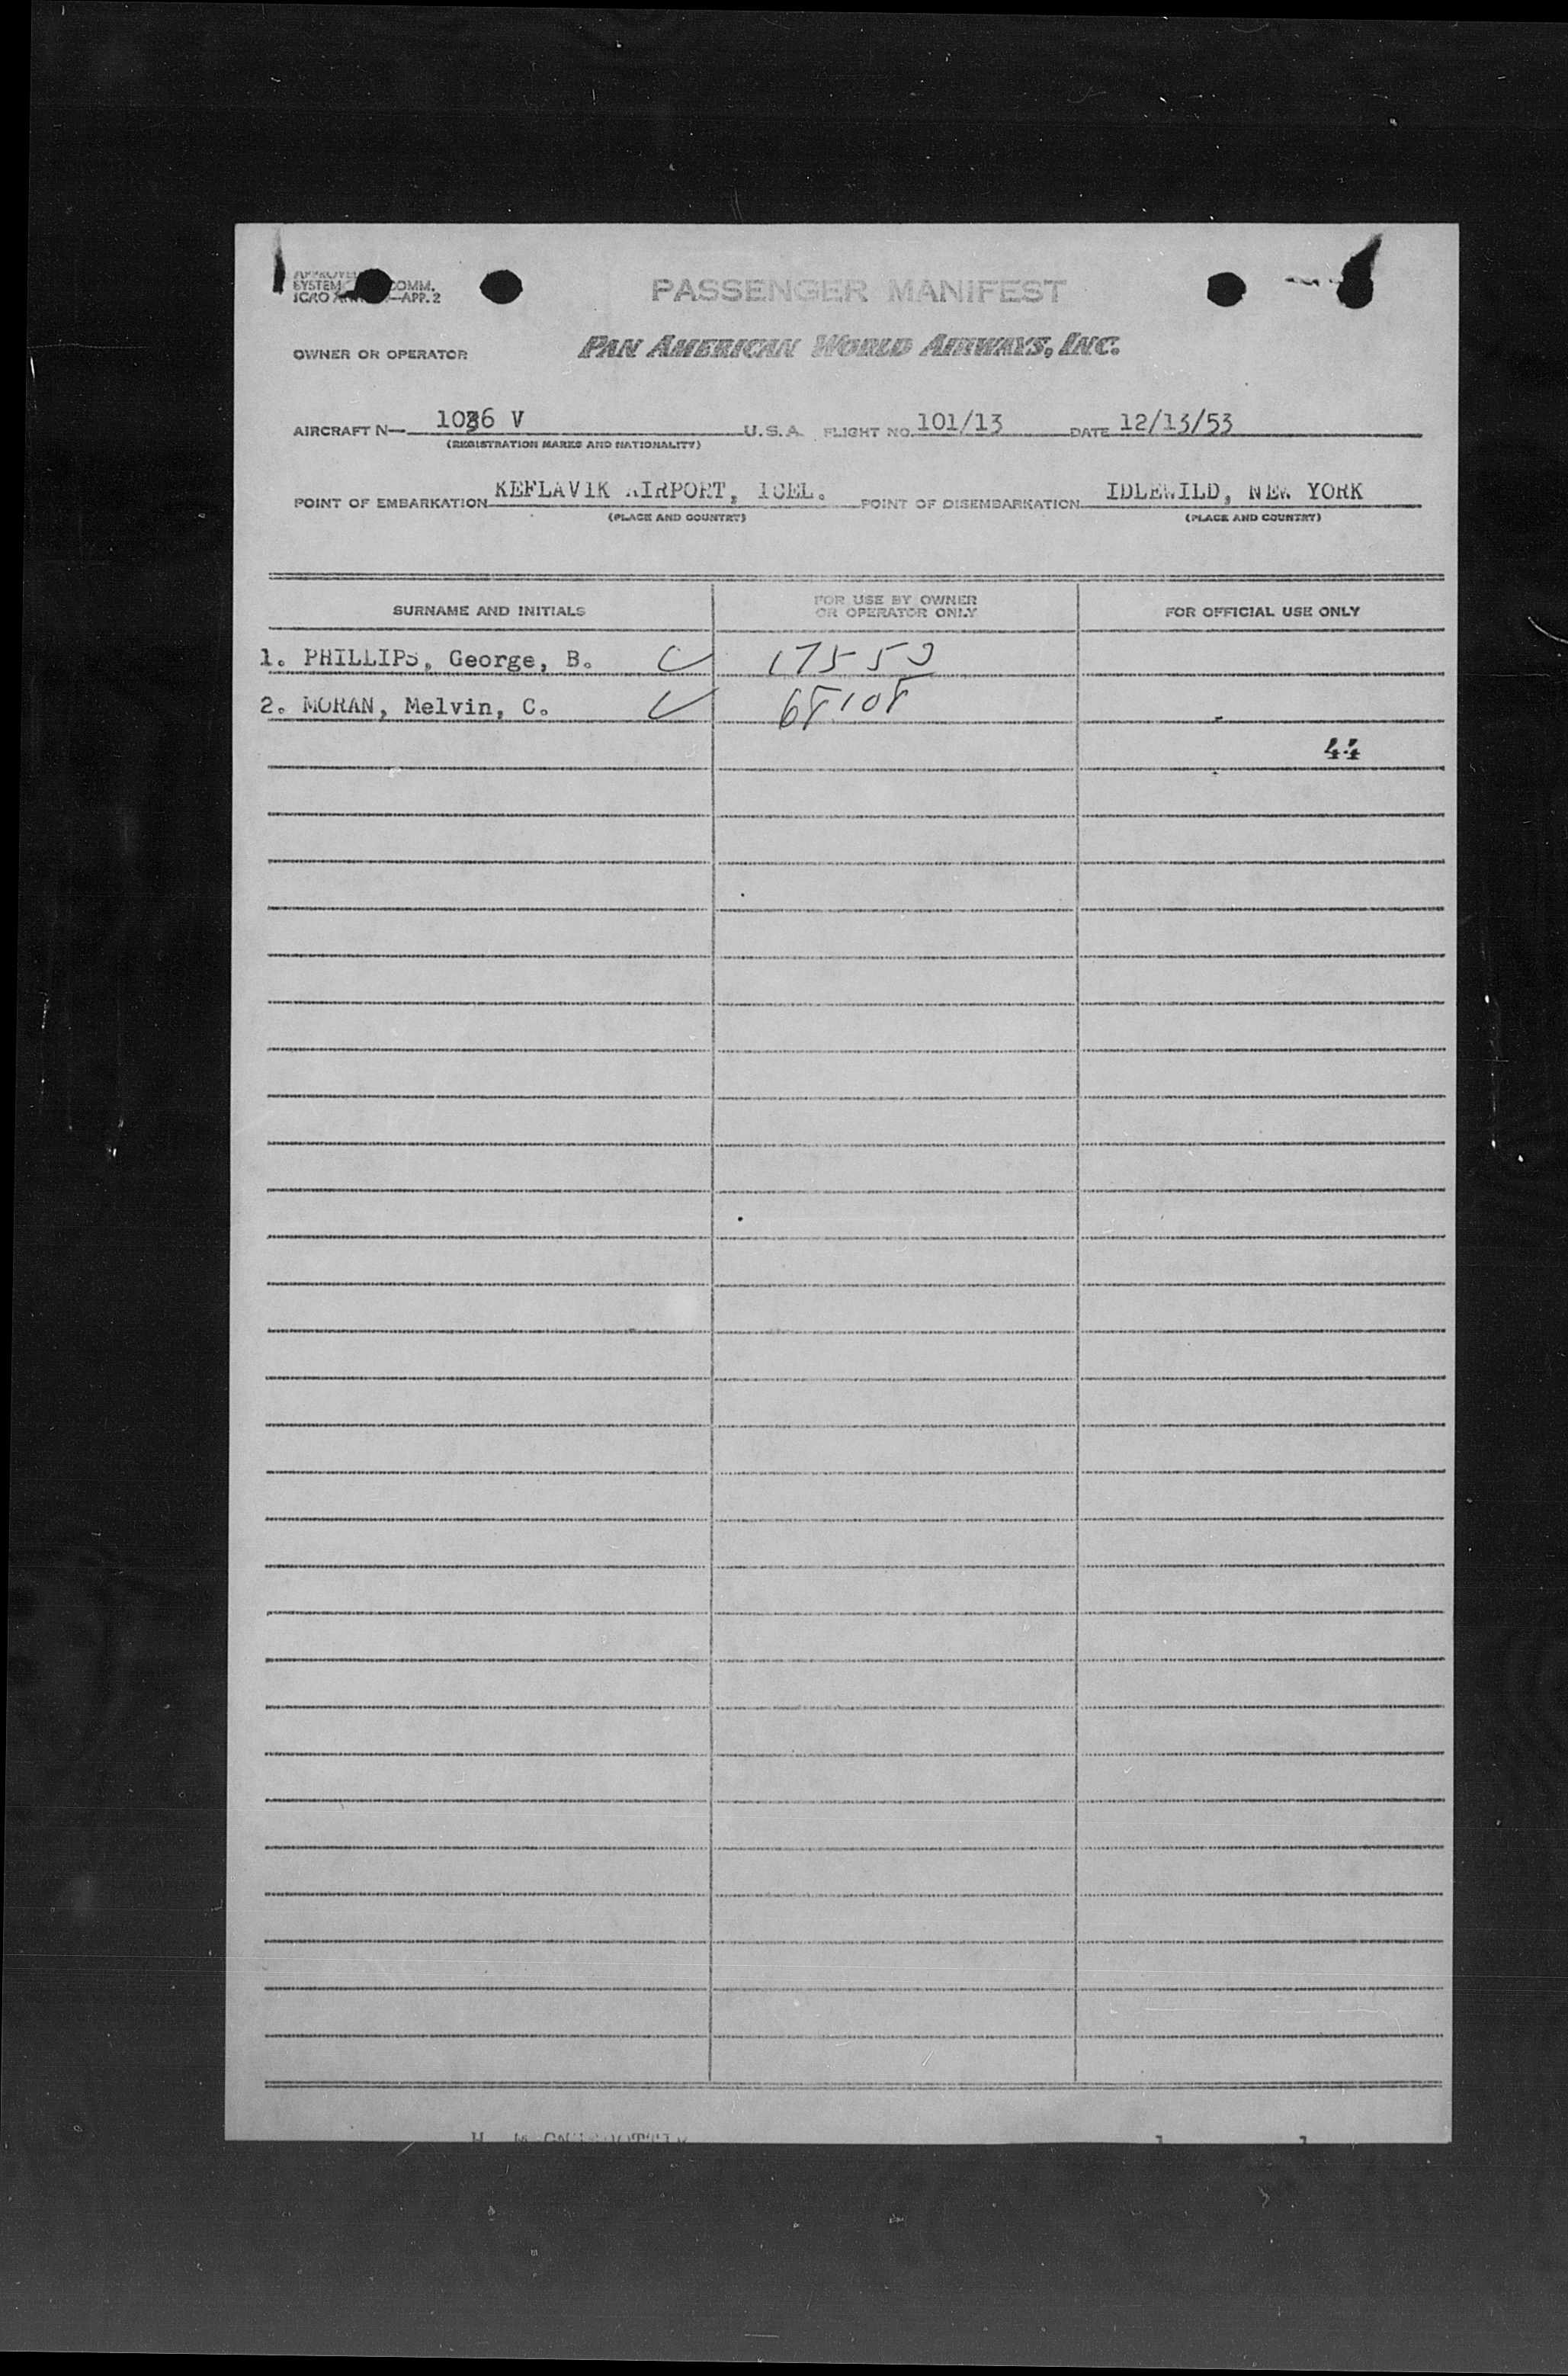 PASSENGER MANIFEST
SYSTEM COMM.
ICAO —APP. 2
OWNER OR OPERATOR PAN AMERICAN WORLD AIRWAYS, INC.
AIRCRAFT N— 1036 V U.S.A. FLIGHT NO. 101/13 DATE 12/13/53
(REGISTRATION MARKS AND NATIONALITY)
POINT OF EMBARKATION KEFLAVIK AIRPORT, ICEL. POINT OF DISEMBARKATION IDLEWILD, NEW YORK
(PLACE AND COUNTRY) (PLACE AND COUNTRY)
SURNAME AND INITIALS
FOR USE BY OWNER
OR OPERATOR ONLY
FOR OFFICIAL USE ONLY
1. PHILLIPS, George, B. 17550
2. MORAN, Melvin, C. 68108
44